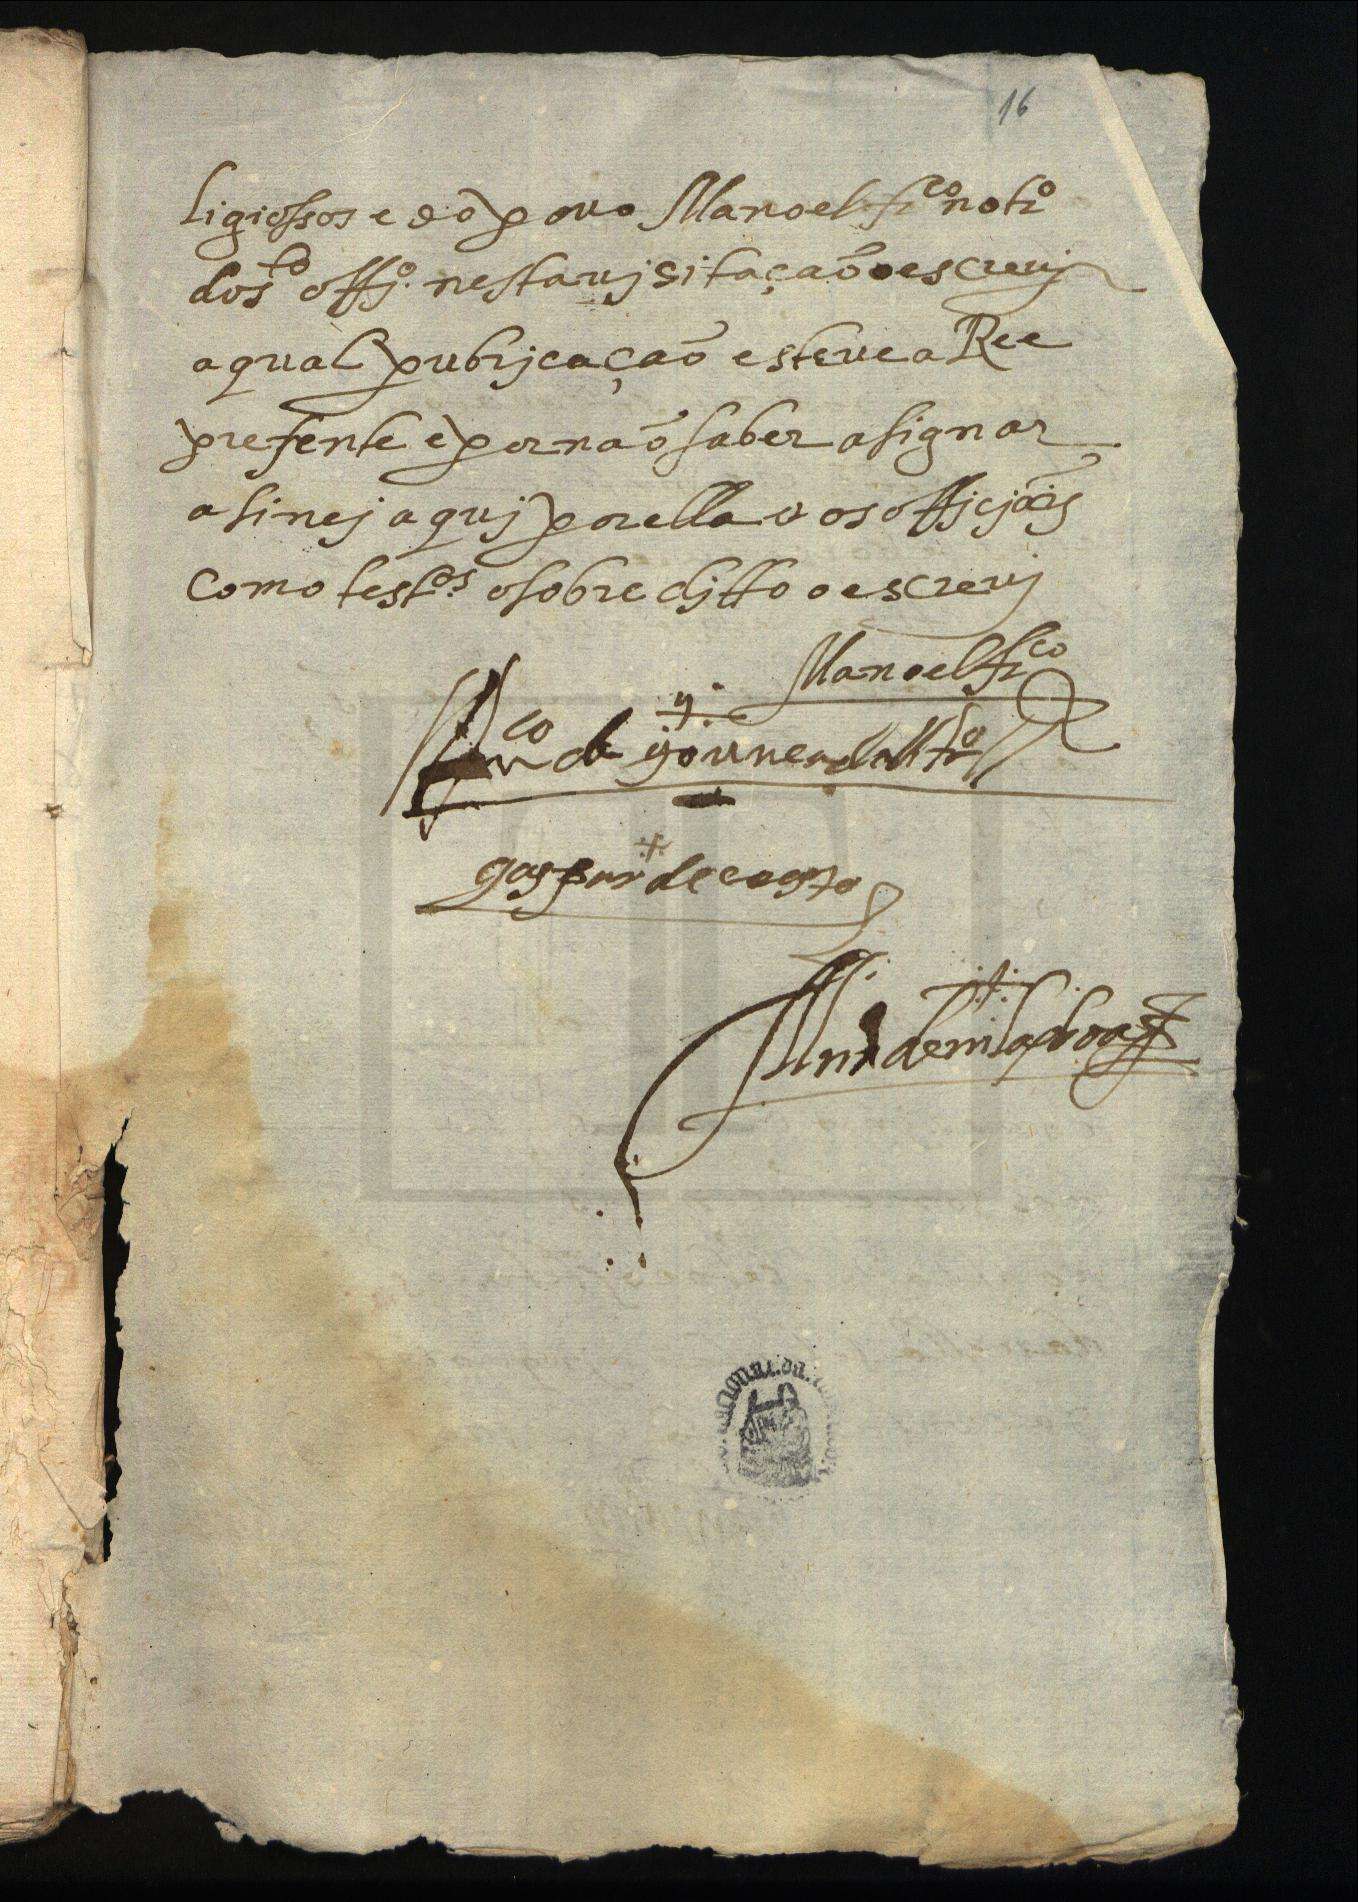 16
ligiossos e do povo Manoel fr.co notr.o
do s.to offj.o nesta vjsitação o escrevj
a qual pubrjcação esteve a Ree
presente e por não saber asignar
asinej aquj por ella e os offjcjães
como test.os o sobre djtto o escrevj
Manoel fr.co
fr.co de gouvea
gaspar de